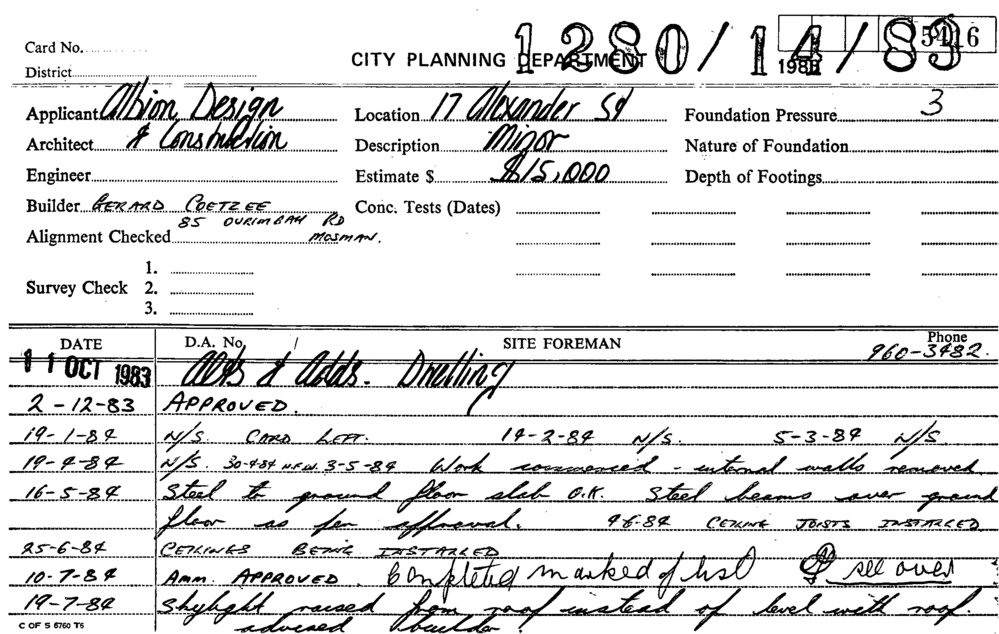 5416
Card No.
CITY PLANNING DEPARTMENT 1280/14/83
198
District
Applicant Albion Design Location 17 Alexander St Foundation Pressure 3
Architect & Construction Description Minor Nature of Foundation
Engineer Estimate $ $15,000 Depth of Footings
Builder GERARD COETZEE Conc. Tests (Dates)
85 OURIMBAH RD
Alignment Checked MOSMAN.
1.
Survey Check 2.
3.
DATE D.A. No. / SITE FOREMAN Phone
960-3482.
11 OCT 1983 Alts & Adds. Dwelling
2-12-83 APPROVED.
19-1-84 N/S. CARD LEFT. 14-2-84 N/S. 5-3-84 N/S.
19-4-84 N/S. 30-4-84 3-5-84 Work commenced - internal walls removed
16-5-84 Steel to ground floor slab O.K. Steel beams over ground
floor as per approval. 4-6-84 CEILING JOISTS INSTALLED
25-6-84 CEILINGS BEING INSTALLED
10-7-84 Amm. APPROVED. Completed marked of list see over
19-7-84 Skylight raised from roof instead of level with roof.
advised builder.
C OF S 6760 T6